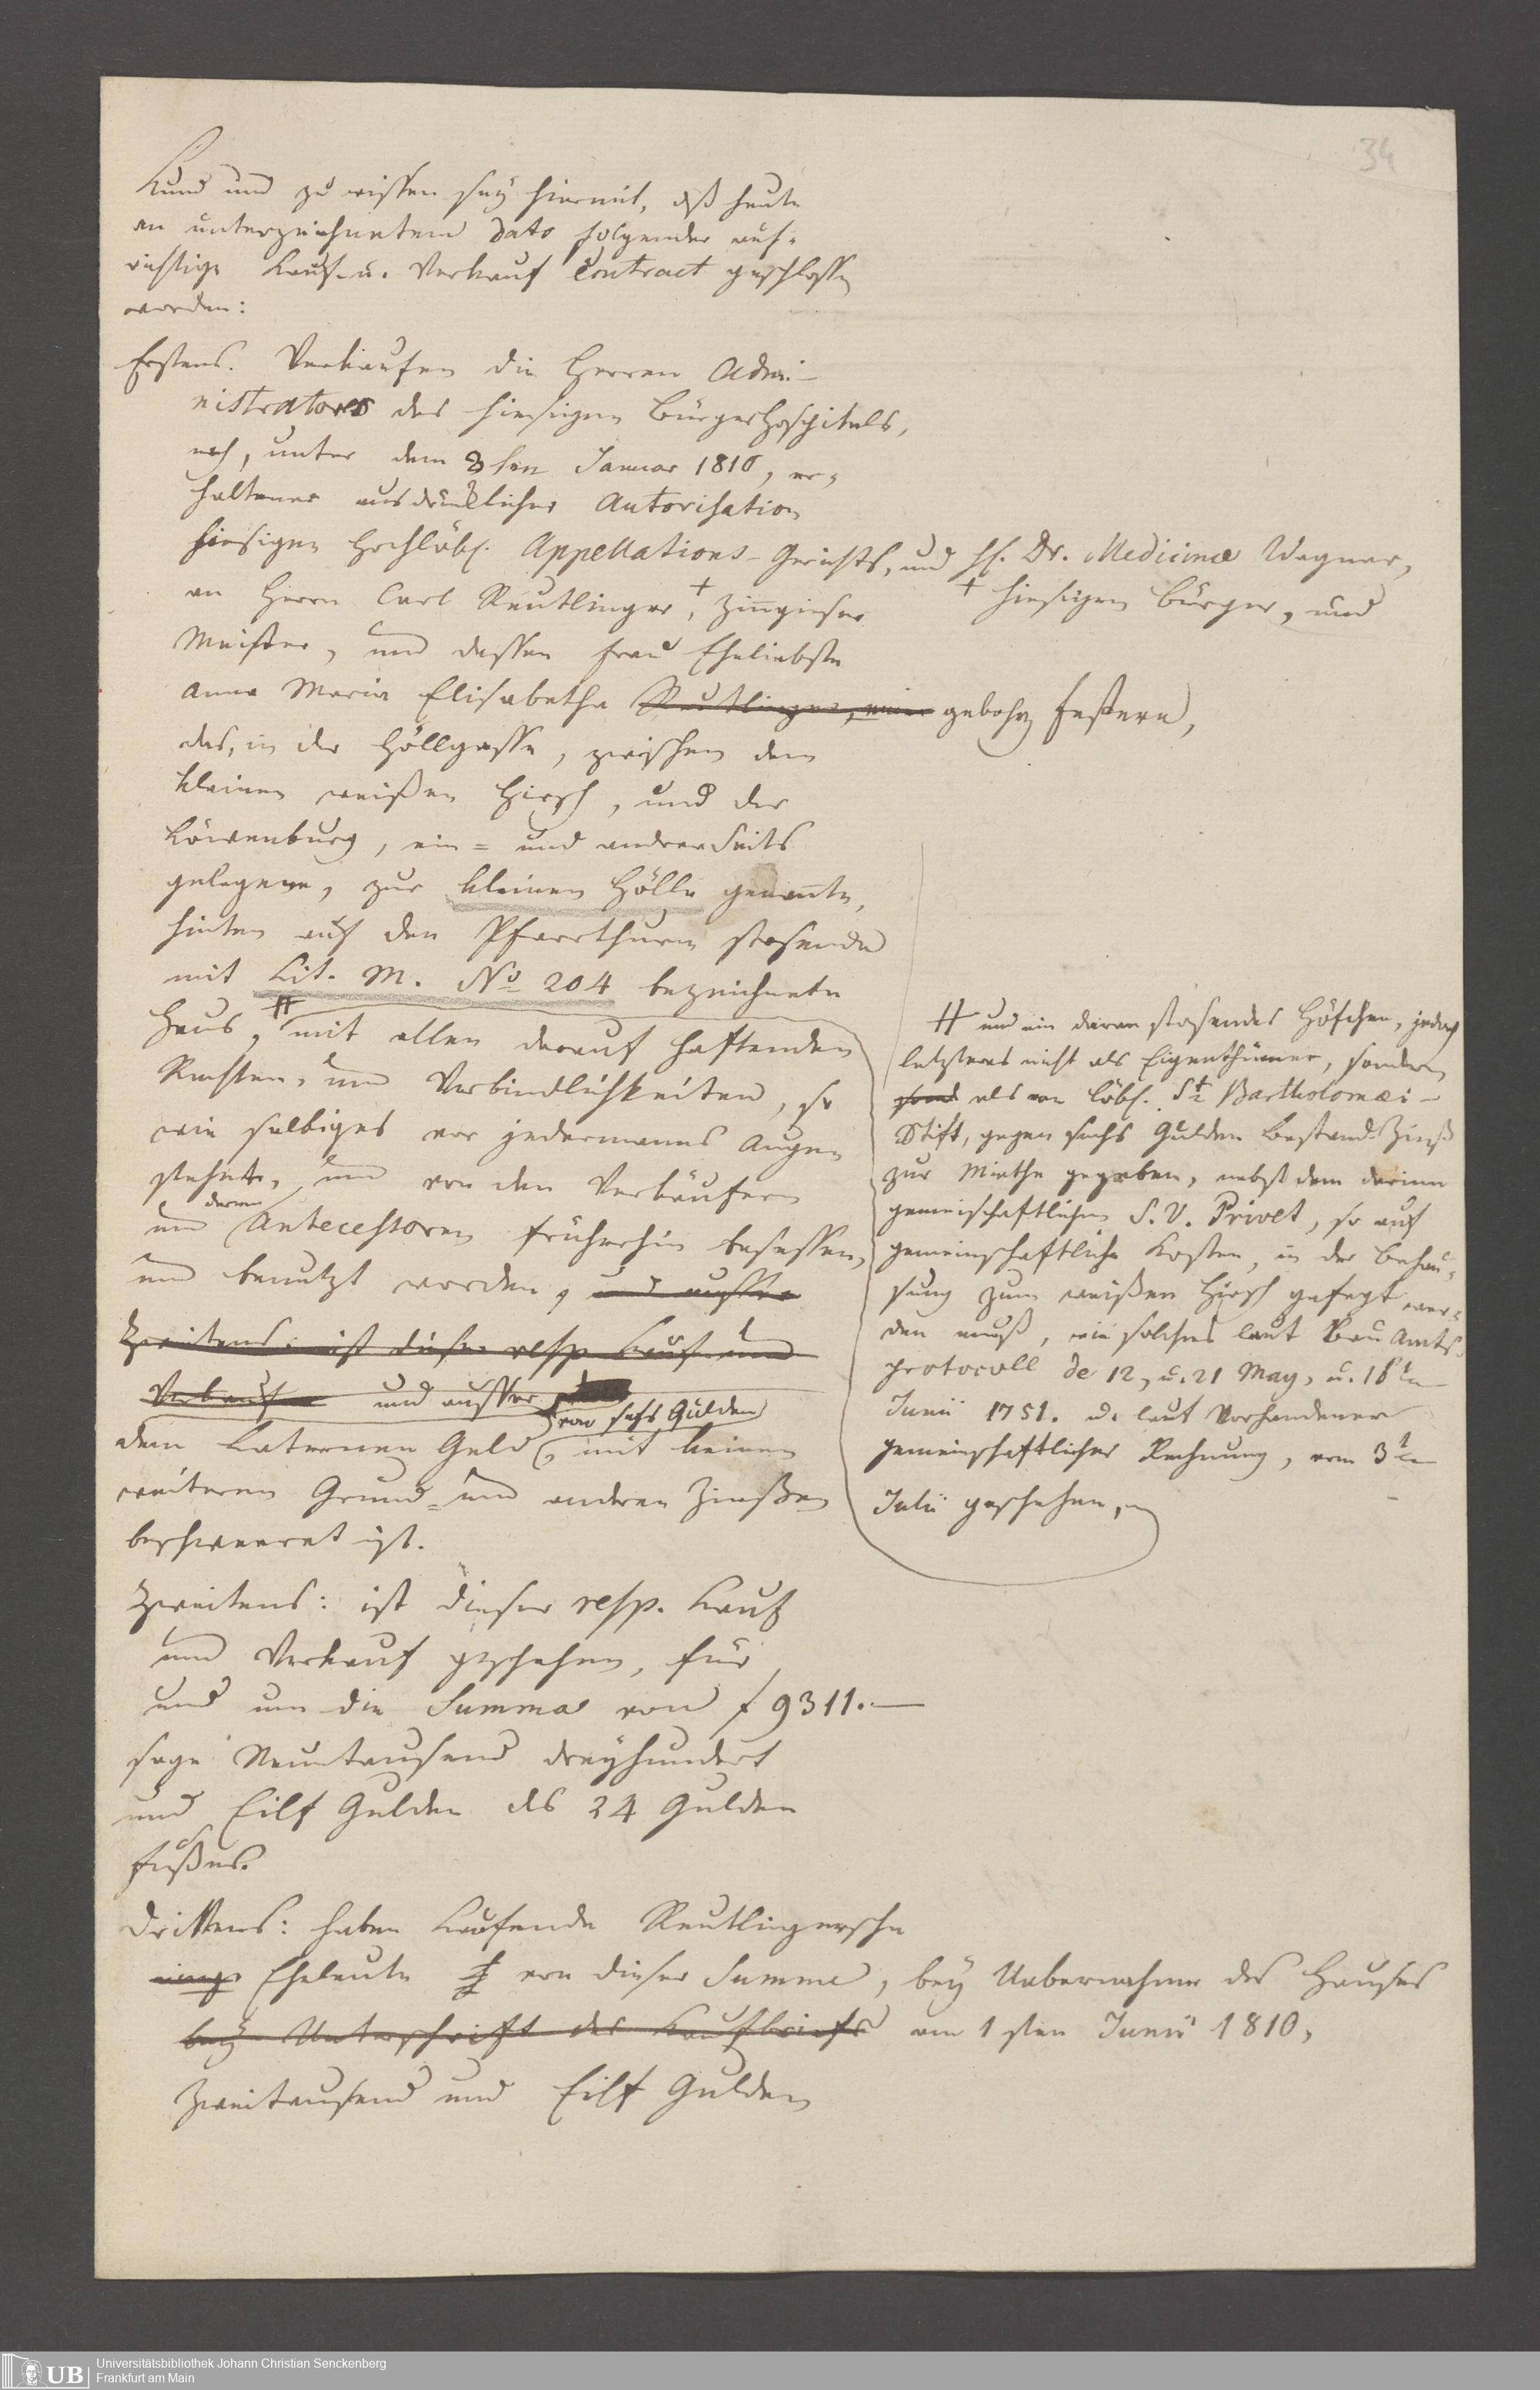 34
Kund und zu wissen sey hiermit, daß heute
an unterzeichnetem dato folgender auf-
richtige Kauf- u. Verkauf Contract geschlossen
worden:
Erstens. Verkaufen die Herren Admi-
nistratores des hiesigen Bürgerhospitals,
nach, unter dem 8ten Januar 1810, er-
haltener ausdrücklicher Autorisation
hiesigen Hochlöbl. Appellations-Gerichts, und H. Dr. Medicinæ Wagner,
an Herrn Carl Reutlinger, † Zinngieser
† hiesigen Bürger, und
Meister, und dessen Frau Eheliebste
Anna Maria Elisabetha Reutlinger, eine gebohrn Festern,
das, in der Höllgasse, zwischen dem
kleinen weißen Hirsch, und der
Löwenburg, ein= und andrerseits
gelegene, zur kleinen Hölle genannte,
hinten auf den Pfarrthurm stosende
mit Lit. M. No 204 bezeichnete
Haus, # mit allen darauf haftenden
Rechten, und Verbindlichkeiten, so
wie selbiges vor jedermanns Augen
stehet, und von den Verkäufern
und deren Antecessoren früherhin besessen,
und benutzt worden, und ausser
Zweitens: ist dieser resp. Kauf und
Verkauf und ausser
von sechs Gulden
dem Laternen Geld, mit keinen
weiteren Grund- und anderen Zinßen
beschweeret ist.
# und ein daran stosendes Höfchen, jedoch
letzteres nicht als Eigenthümer, sondern
sond als von löbl. St Bartholomæi-
Stift, gegen sechs Gulden Bestand Zinß
zur Miethe gegeben, nebst dem darinn
gemeinschaftlichen S. V. Privet, so auf
gemeinschaftliche Kosten, in der Behau-
sung zum weißen Hirsch gefegt wer-
den muß, wie solches laut Bau Amts-
protocoll de 12, u. 21 May, u. 18ten
Junii 1751. u. laut vorhandener
gemeinschaftlicher Rechnung, vom 3ten
Julii geschehen,
Zweitens: ist dieser resp. Kauf
und Verkauf geschehen, für
und um die Summa von f 9311.—
sage Neuntausend dreyhundert
und Eilf Gulden des 24 Gulden
Fußes.
Drittens: haben Kaufende Reutlingersche
Eheleute von dieser Summe, bey Uebernahme des Hauses
bey Unterschrift des Kaufbriefs am 1sten Junii 1810,
Zweitausend und Eilf Gulden
UB
Universitätsbibliothek Johann Christian Senckenberg
Frankfurt am Main